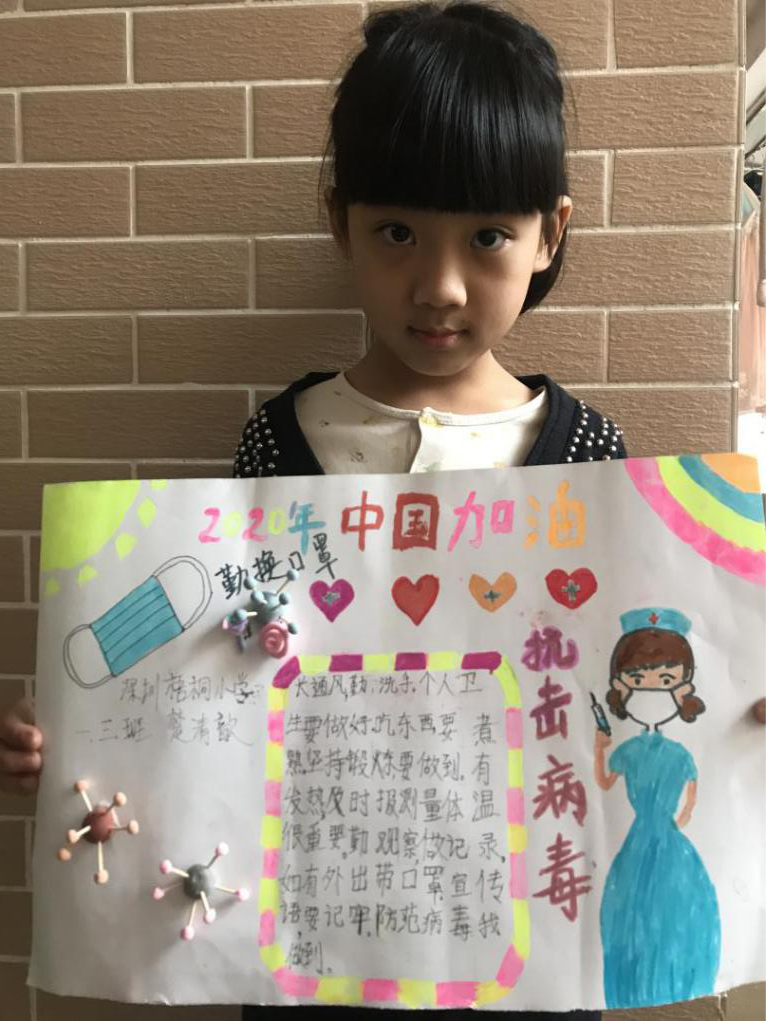 2020年 中国加油
勤换口罩
深圳梧桐小学
一.三班
抗击病毒
长通风,勤洗手.个人卫
生要做好.吃东西要煮
熟坚持锻炼要做到.有
发热及时报测量体温
很重要.勤观察做记录.
如有外出带口罩.宣传
语要记牢.防范病毒我
做到.